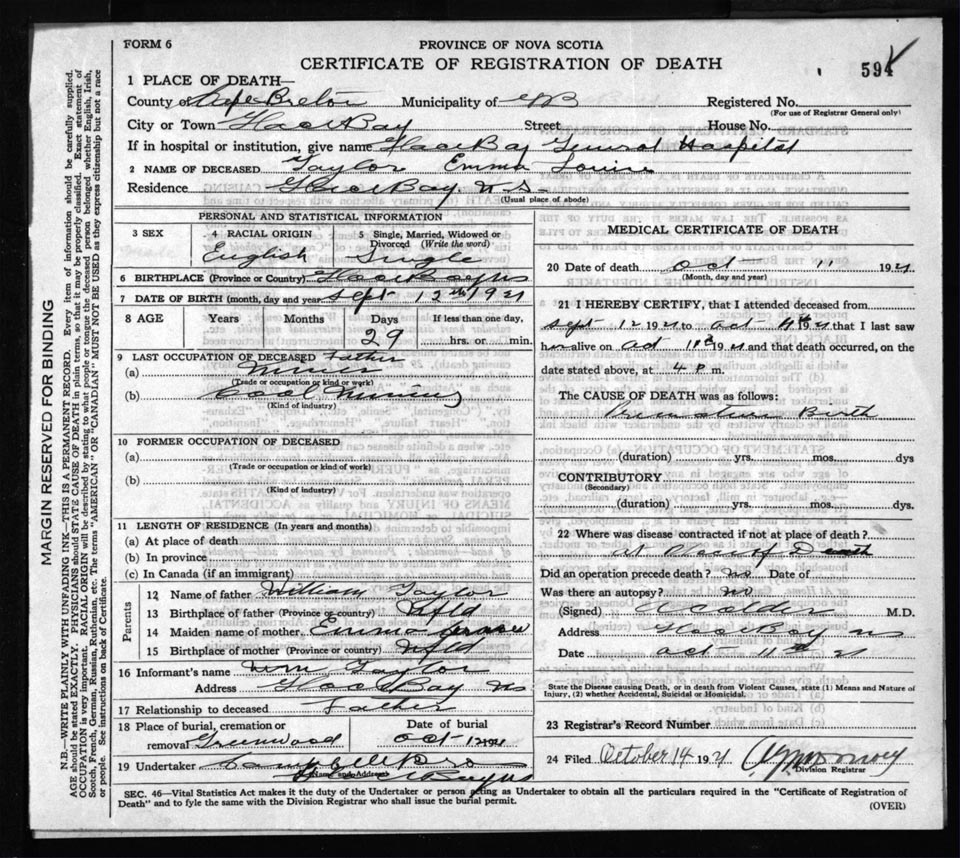 FORM 6
PROVINCE OF NOVA SCOTIA
CERTIFICATE OF REGISTRATION OF DEATH
594
1 PLACE OF DEATH—
County of Cape Breton Municipality of Registered No.
(For use of Registrar General only)
City or Town Glace Bay Street House No.
If in hospital or institution, give name Glace Bay General Hospital
2 NAME OF DECEASED Taylor Emma Louise
Residence Glace Bay N.S.
(Usual place of abode)
PERSONAL AND STATISTICAL INFORMATION
3 SEX
4 RACIAL ORIGIN
English
5 Single, Married, Widowed or Divorced (Write the word)
Single
6 BIRTHPLACE (Province or Country) Glace Bay NS
7 DATE OF BIRTH (month, day and year) Sept 12th 1921
8 AGE Years Months Days If less than one day,
29 hrs. or min.
9 LAST OCCUPATION OF DECEASED Father
(a) Miner
(Trade or occupation or kind or work)
(b) Coal Mining
(Kind of industry)
10 FORMER OCCUPATION OF DECEASED
(a)
(Trade or occupation or kind of work)
(b)
(Kind of industry)
11 LENGTH OF RESIDENCE (In years and months)
(a) At place of death
(b) In province
(c) In Canada (if an immigrant)
Parents
12 Name of father William Taylor
13 Birthplace of father (Province or country) Nfld
14 Maiden name of mother Emma
15 Birthplace of mother (Province or country) Nfld
16 Informant's name Wm Taylor
Address Glace Bay NS
17 Relationship to deceased Father
18 Place of burial, cremation or removal Greenwood
Date of burial
Oct 12 1921
19 Undertaker
(Name and Address)
MEDICAL CERTIFICATE OF DEATH
20 Date of death Oct 11 1921
(Month, day and year)
21 I HEREBY CERTIFY, that I attended deceased from
Sept 12 1921 to Oct 11th 1921 that I last saw
her alive on Oct 11th 1921 and that death occurred, on the
date stated above, at 4 P. m.
The CAUSE OF DEATH was as follows:
Premature Birth
(duration) yrs. mos. dys
CONTRIBUTORY
(Secondary)
(duration) yrs. mos. dys.
22 Where was disease contracted if not at place of death?
at Place of Death
Did an operation precede death? no Date of
Was there an autopsy? no
(Signed) M.D.
Address Glace Bay NS
Date Oct 11th 21
State the Disease causing Death, or in death from Violent Causes, state (1) Means and Nature of
Injury, (2) whether Accidental, Suicidal or Homicidal.
23 Registrar's Record Number
24 Filed October 14 1921
Division Registrar
SEC. 46—Vital Statistics Act makes it the duty of the Undertaker or person acting as Undertaker to obtain all the particulars required in the "Certificate of Registration of
Death" and to fyle the same with the Division Registrar who shall issue the burial permit.
(OVER)
MARGIN RESERVED FOR BINDING
N.B.—WRITE PLAINLY WITH UNFADING INK—THIS IS A PERMANENT RECORD. Every item of information should be carefully supplied.
AGE should be stated EXACTLY. PHYSICIANS should STATE CAUSE OF DEATH in plain terms, so that it may be properly classified. Exact statement of
OCCUPATION is very important. RACIAL ORIGIN will be described by stating to what people or tongue the deceased person belonged whether English, Irish,
Scotch, French, German, Russian, Ruthenian, etc. The terms "AMERICAN" OR "CANADIAN" MUST NOT BE USED as they express citizenship but not a race
or people. See instructions on back of Certificate.